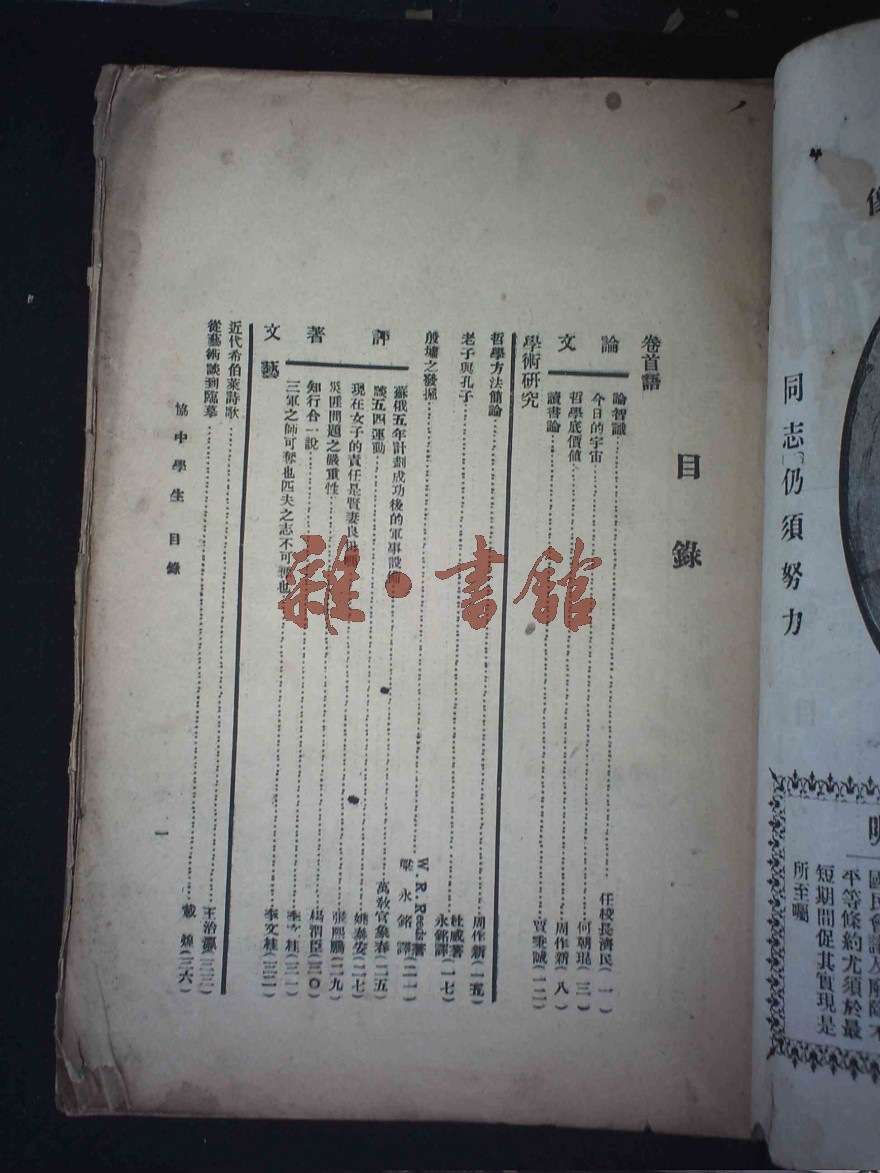 目錄
卷首語
論文
論智識……任校長濟民(一)
今日的宇宙……何朝琨(三)
哲學底價值……周作新(八)
讀書論……賈秉誠(一二)
學術研究
哲學方法簡論……周作新(一五)
老子與孔子……杜威著 永銘譯(一七)
殷墟之發掘……W. R. Reeds著 梁永銘譯(二一)
評著
蘇俄五年計劃成功後的軍事設備……萬敎官象春(二五)
談五四運動……姚泰安(二七)
現在女子的責任是賢妻良母嗎
災匪問題之嚴重性……張熙鵬(二九)
知行合一說……楊潤臣(三〇)
三軍之帥可奪也匹夫之志不可奪也……李文桂(三二)
李文桂(三一)
文藝
近代希伯萊詩歌……王治瀛(三三)
從藝術談到臨摹……戴(三六)
協中學生 目錄
一
雜·書館
同志仍須努力
國民會議及廢除不
平等條約尤須於最
短期間促其實現是
所至囑